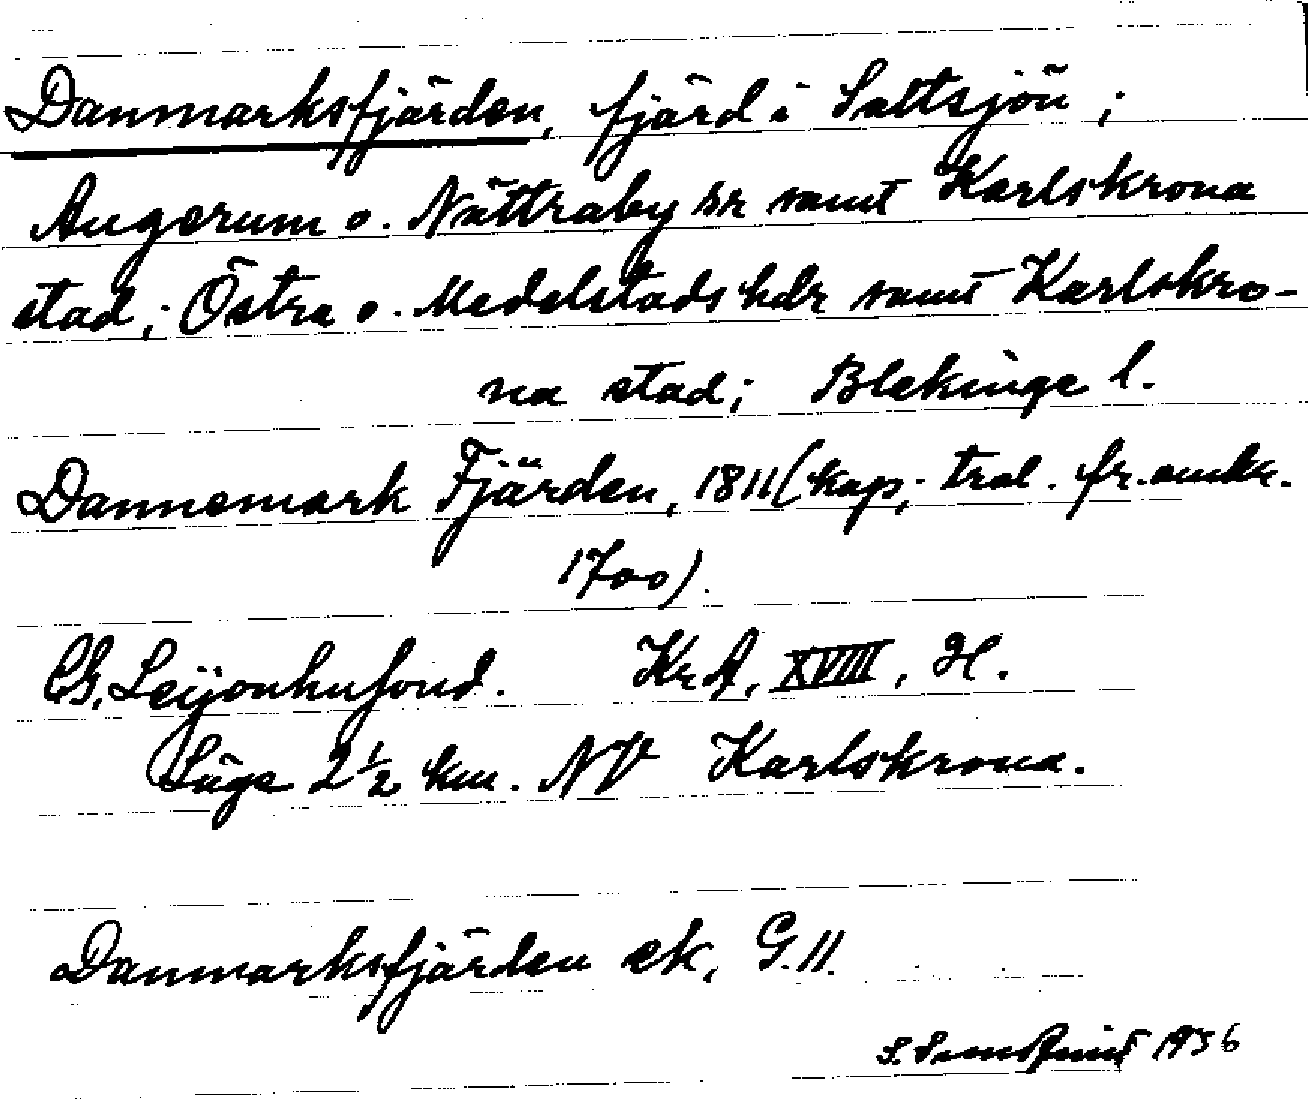 Danmarksfjärden, fjärd i Saltsjön;
Augerum o. Nättraby snr samt Karlskrona
stad; Östra o. Medelstads hdr samt Karlskro-
na stad; Blekinge l.
Dannemark Fjärden, 1811 (kop; tral. fr. omkr.
1700).
CG. Leijonhufvud. KrA, XVIII, H.
Läge 2 1/2 km. NV Karlskrona.
Danmarksfjärden ek, G.11.
S. 1936